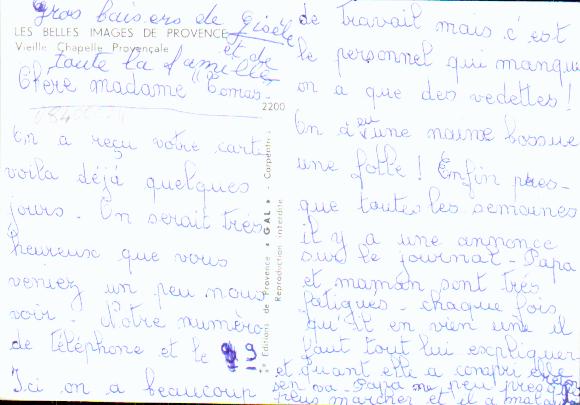 Gros baisers de Gisèle
LES BELLES IMAGES DE PROVENCE
Vieille Chapelle Provençale
et de
toute la famille
Chère madame Comas.
2200
On a reçu votre carte
voila déjà quelques
jours. On serait très
heureux que vous
veniez un peu nous
voir. Notre numéro
de téléphone et le 9
Ici on a beaucoup
Editions de Provence « GAL » - Carpentras
Reproduction interdite
de travail mais c'est
le personnel qui manque
on a que des vedettes!
On à eu une naine bossue
une folle! Enfin pres-
que toutes les semaines
il y a une annonce
sur le journal - Papa
et maman sont très
fatigués - chaque fois
qu'it en vien une il
faut tout lui expliquer
et quant elle a compri elle
sen va - Papa ne peu presque
plus marcher et il a mal au